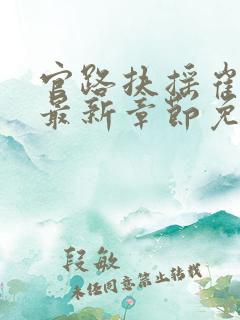 官路扶摇崔
最新章节免
段敏
未经同意禁止转载